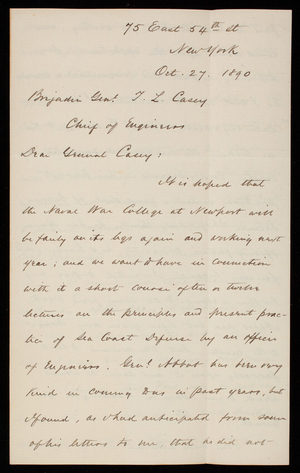 75 East 54th st
New York
Oct. 27. 1890
Brigadier Genl. T. L. Casey
Chief of Engineers
Dear General Casey:
It is hoped that
the Naval War College at Newport will
be fairly on its legs again and working next
year; and we want to have in connection
with it a short course of ten or twelve
lectures on the principles and present prac-
tice of Sea Coast Defense by an officer
of Engineers. Genl. Abbot has been very
kind in coming to us in past years, but
I found, as I had anticipated from some
of his letters to me, that he did not